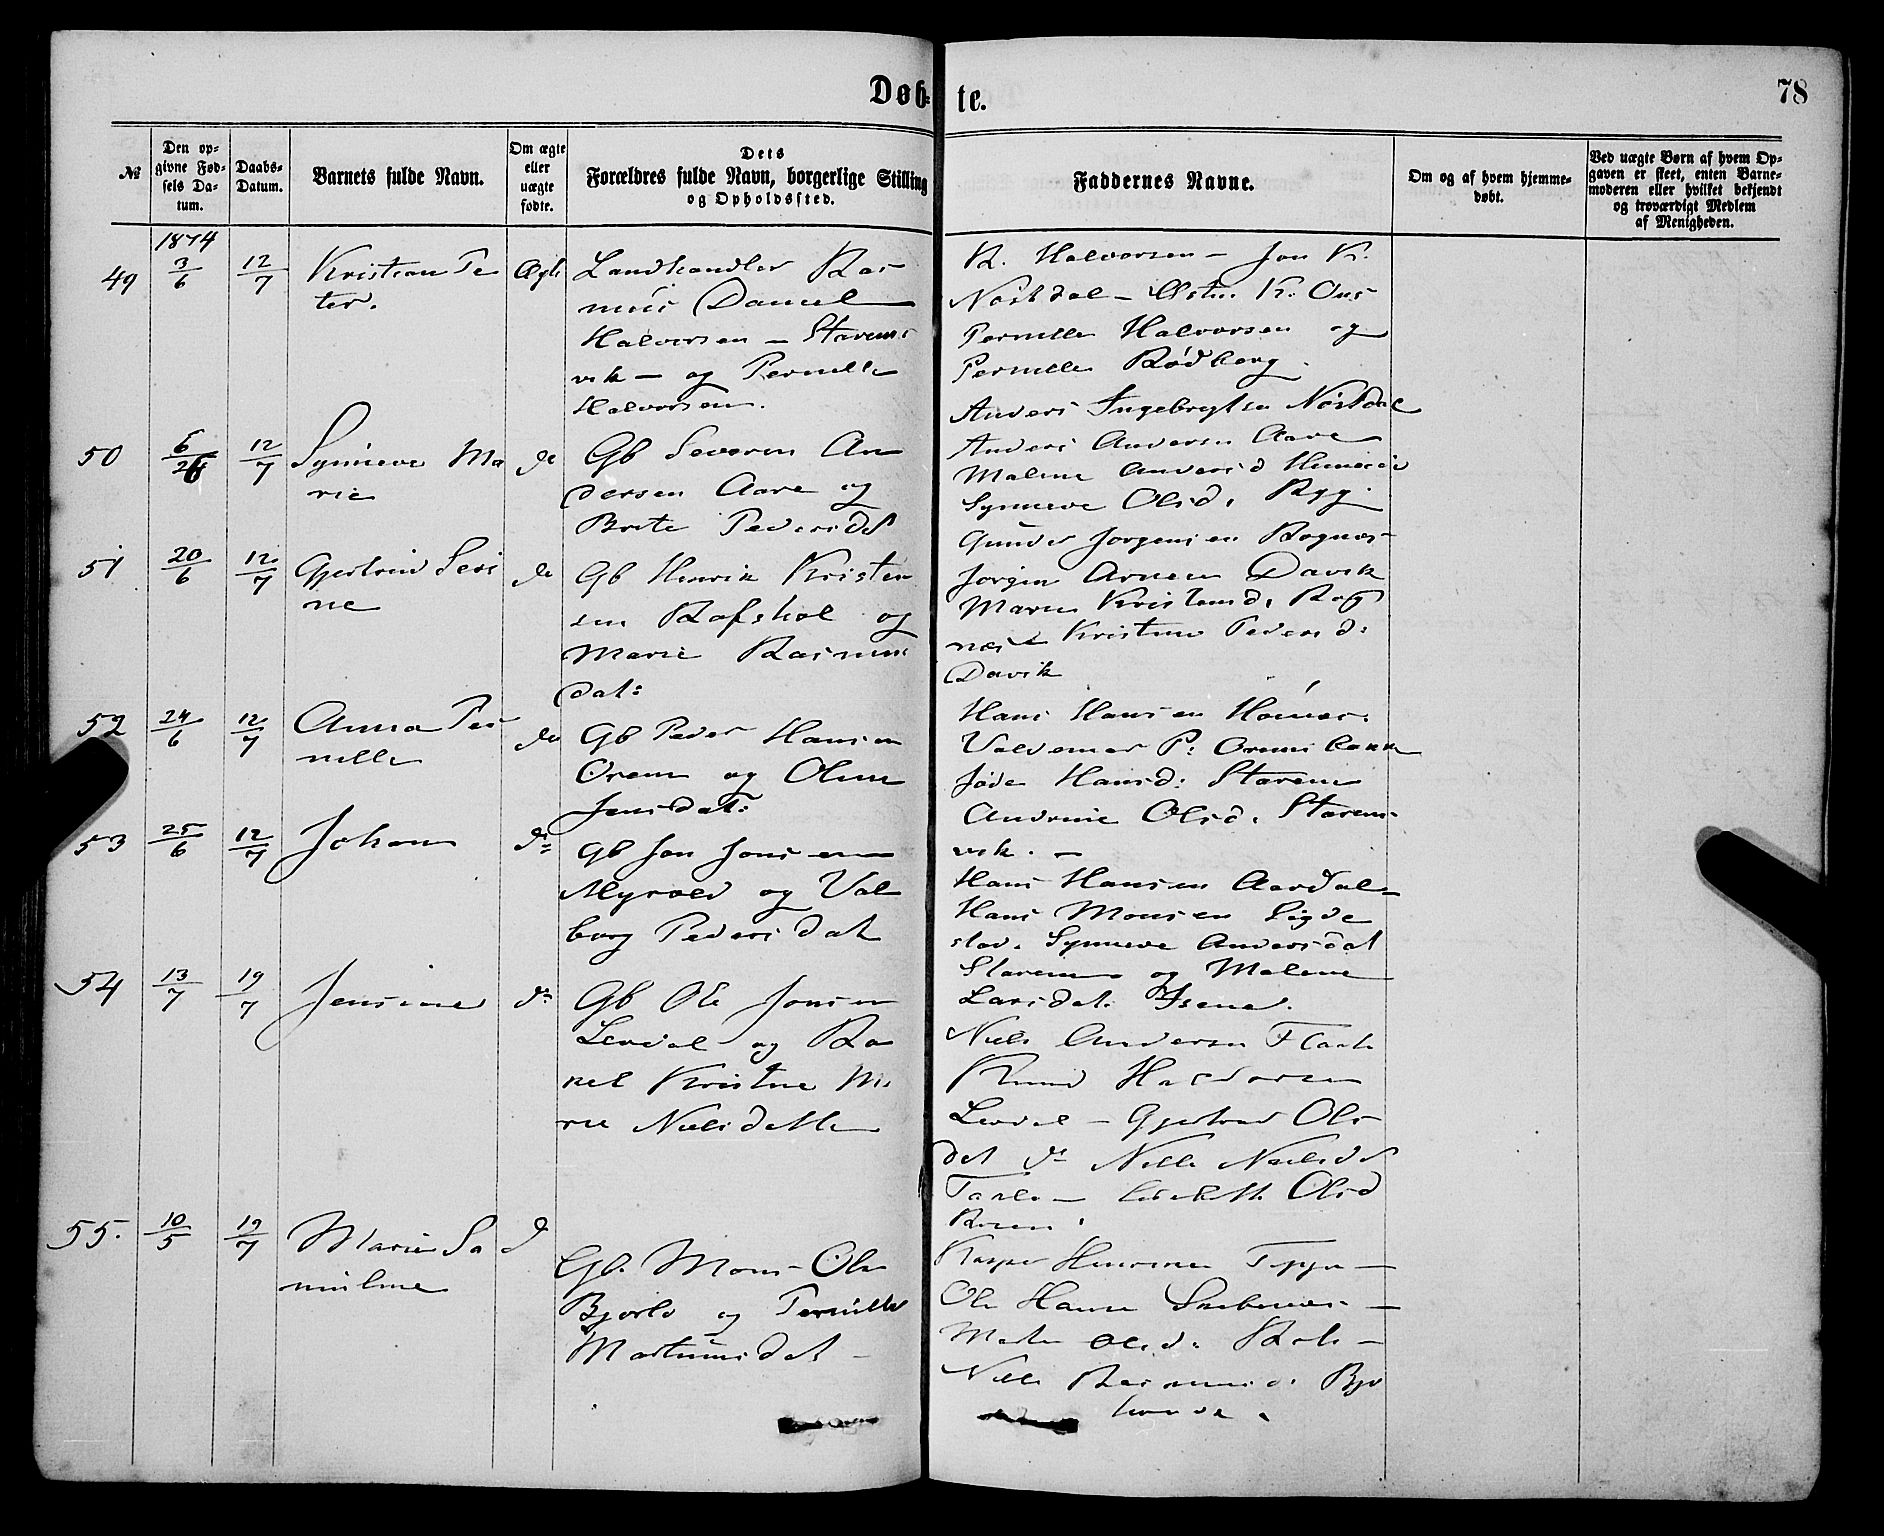 Døb-te.
78
№
Den op-
givne Fød-
sels Da-
tum.
Daabs-
Datum.
Barnets fulde Navn.
Om ægte
eller
uægte
fødte.
Dets
Forældres fulde Navn, borgerlige Stilling
og Opholdssted.
Faddernes Navne.
Om og af hvem hjemme-
døbt.
Ved uægte Børn af hvem Op-
gaven er skeet, enten Barne-
moderen eller hvilket bekjendt
og troværdigt Medlem
af Menigheden.
1874
49
3/6
12/7
Kristian Pe
ter.
Ægte
Landhandler Ras
mus Daniel
Halvorsen – Starems
vik – og Pernille
Halvorsen.
R. Halvorsen – Jon R.
Nøstdal – K.
Pernille Halvorsen og
Pernille Rødberg.
50
12/7
Synneve Ma
rie
do
Gb Severin An
dersen Aare og
Brite Pedersdt
Anders Ingebrigtsen Nøstdal
Anders Andersen Aare
Malene Andersd
Synneve Olsd. Ryg.
51
20/6
12/7
Gjertrud Seri
ne
do
Gb Henrik Kristen
sen Rafshol og
Marie Rasmus
dat:
Gunder Jørgensen Rognes-
Jørgen Davik
Maren Kristensd. Rog
nes Kristine Pedersd:
Davik
52
24/6
12/7
Anna Per
nille
do
Gb Peder Hansen
Orem og Oline
Jensdat:
Hans Hansen
Valdemar P:
Hansd: Starem
Andrine Olsd. Starem-
vik. –
53
25/6
12/7
Johan
do
Gb Jon Jonsen
Myrold og Val
borg Pedersdat
Hans Hansen Aardal-
Hans Monsen Sigde
stad. Synneve Andersdat
Starem og Malene
Larsdat. Isene.
54
13/7
19/7
Jensine
do
Gb Ole Jonsen
Levdal og Ra
kel Kristine Ma
rie Nielsdatter
Niels Andersen
Knud Halvorsen
Levdal – Gjertrud Ols
dat do Nille Nielsdt
Olsd
55.
10/5
19/7
Marie Sa
mueline
d
Gb. Mons Ols
Bjørlo og Pernille
Martinusdat –
Kasper
Ole Hansen –
Olsd. –
Nille Rasmusd. Bjo